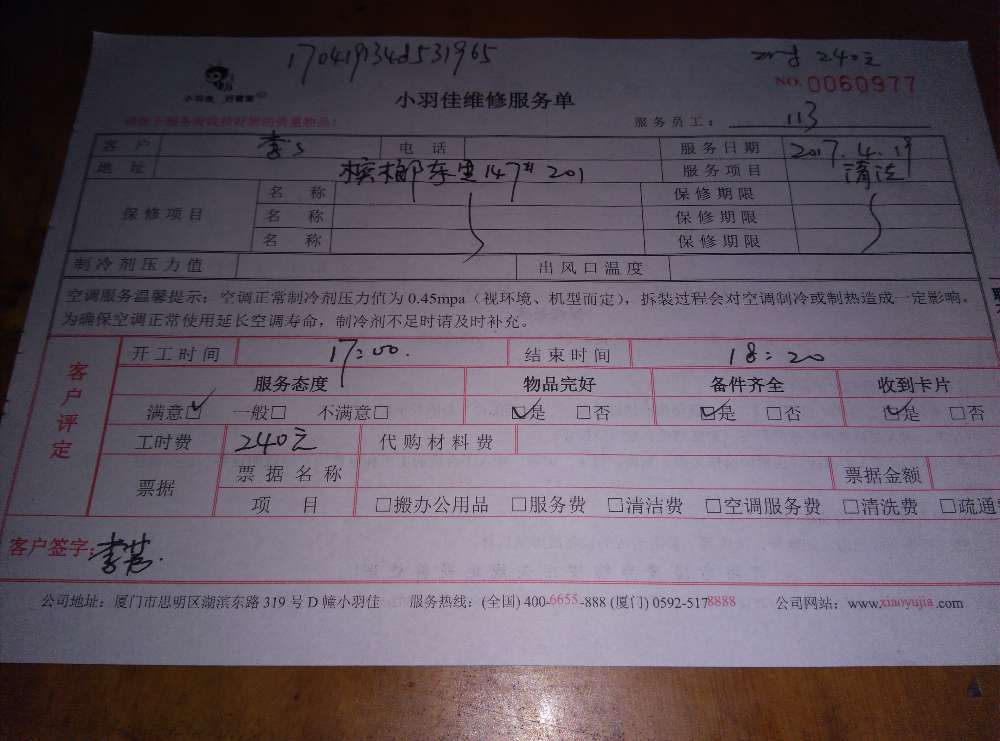 170419134d531965
240元
小羽佳 好管家
NO.0060977
小羽佳维修服务单
请您于服务前收捡好您的贵重物品!
服务员工: 113
客户 李S 电话 服务日期 2017.4.19
地址 槟榔东里147# 201 服务项目 清洗
保修项目 名称 保修期限
名称 保修期限
名称 保修期限
制冷剂压力值 出风口温度
空调服务温馨提示:空调正常制冷剂压力值为0.45mpa(视环境、机型而定),拆装过程会对空调制冷或制热造成一定影响,
为确保空调正常使用延长空调寿命,制冷剂不足时请及时补充。
客户评定
开工时间 17:00. 结束时间 18:20
服务态度 物品完好 备件齐全 收到卡片
满意□ 一般□ 不满意□ □是 □否 □是 □否 □是 □否
工时费 240元 代购材料费
票据 票据名称 票据金额
项目 □搬办公用品 □服务费 □清洁费 □空调服务费 □清洗费 □疏通
客户签字:
公司地址:厦门市思明区湖滨东路319号D幢小羽佳 服务热线:(全国)400-6655-888 (厦门)0592-5178888 公司网站:www.xiaoyujia.com